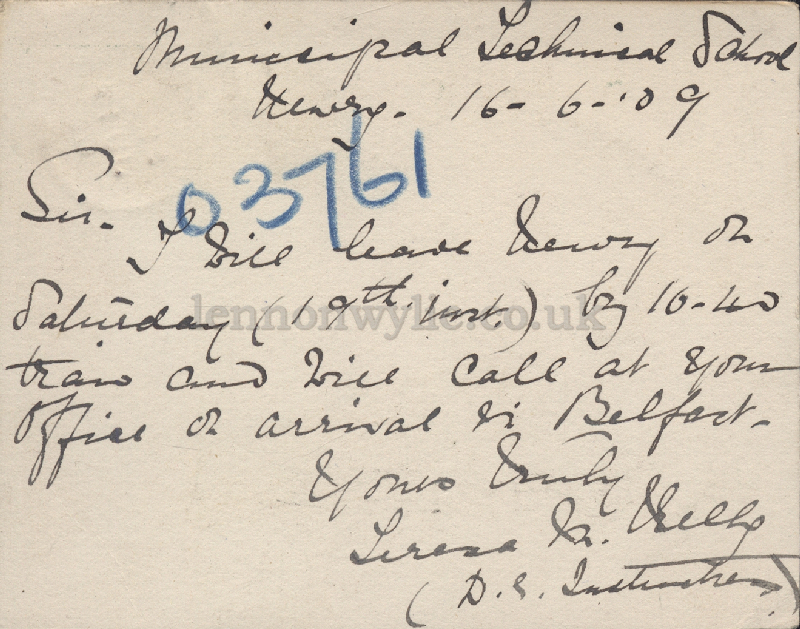 Municipal Technical School
Newry. 16-6-'09
03761
Sir.
I will leave Newry on
Saturday (19th inst.) by 10-40
train and will call at your
Office on arrival in Belfast.
Yours truly
Teresa M. Kelly
(D.E. Instructress)
lennonwylie.co.uk